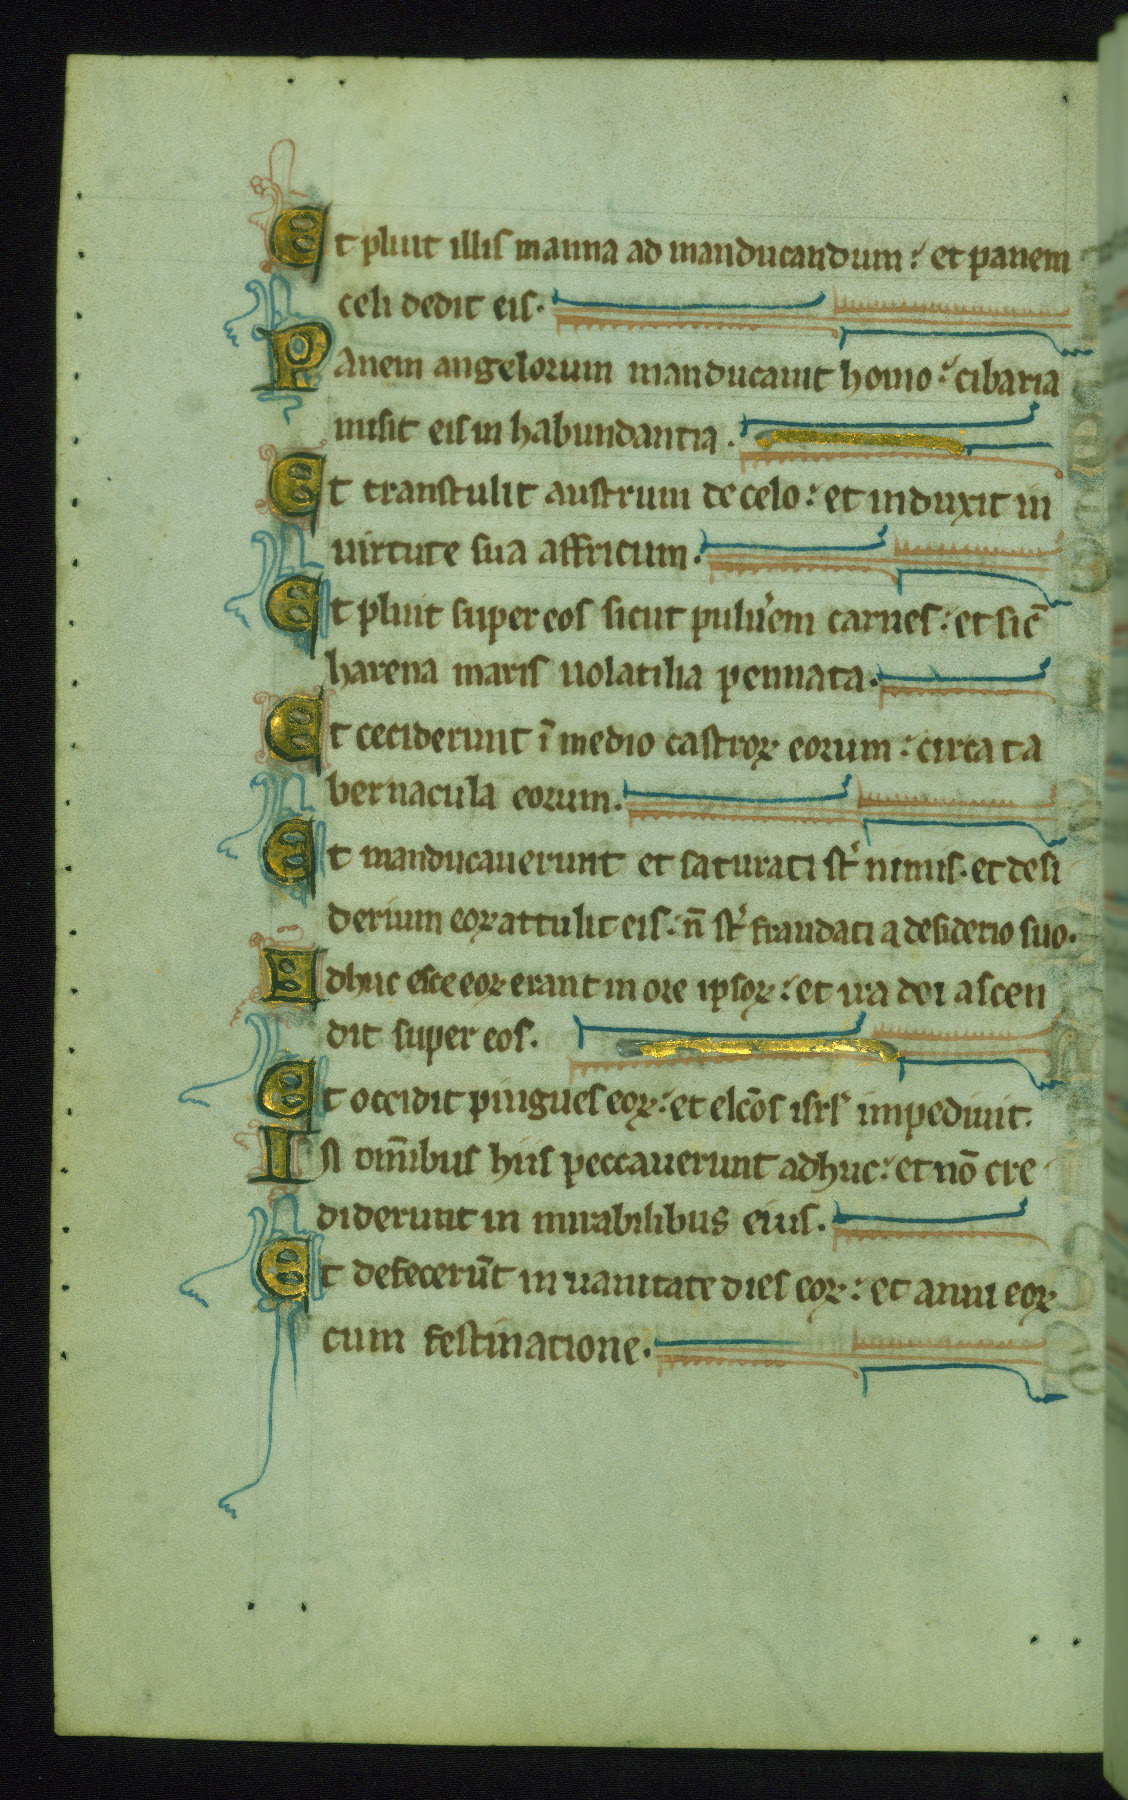 Et pluit illis manna ad manducandum: et panem
celi dedit eis.
Panem angelorum manducauit homo: cibaria
misit eis in habundantia.
Et transtulit austrum de celo: et induxit in
uirtute sua affricum.
Et pluit super eos sicut puluˀem carnes: et sic̄
harena maris uolatilia pennata.
Et ceciderunt ī medio castroꝝ eorum: circa ta
bernacula eorum.
Et manducauerunt et saturati st̾ nimis. et desi
derium eoꝝ attulit eis: n̄ st̾ fraudati a desiderio suo.
Edhuc esce eoꝝ erant in ore ipsoꝝ: et ira dei ascen
dit super eos.
Et occidit pingues eoꝝ: et elc̄os isrl' impediuit.
In om̄ibus hiis peccauerunt adhuc: et nō cre
diderunt in mirabilibus eius.
Et defecerūt in uanitate dies eoꝝ: et anni eoꝝ
cum festinatione.